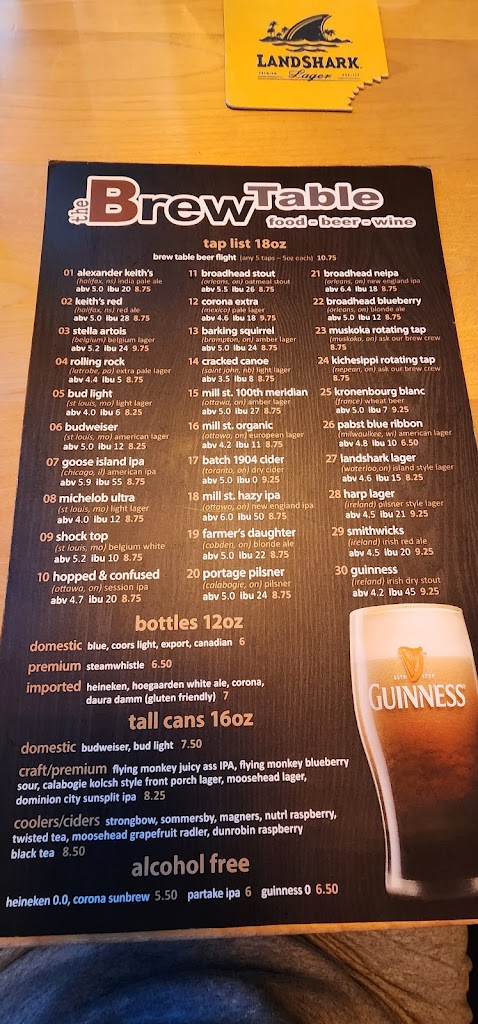 LANDSHARK
Lager
the Brew Table
food - beer - wine
tap list 18oz
brew table beer flight (any 5 taps – 5oz each) 10.75
01 alexander keith's
(halifax, ns) india pale ale
abv 5.0 ibu 20 8.75
02 keith's red
(halifax, ns) red ale
abv 5.0 ibu 28 8.75
03 stella artois
(belgium) belgium lager
abv 5.2 ibu 24 9.75
04 rolling rock
(latrobe, pa) extra pale lager
abv 4.4 ibu 5 8.75
05 bud light
(st louis, mo) light lager
abv 4.0 ibu 6 8.25
06 budweiser
(st louis, mo) american lager
abv 5.0 ibu 12 8.25
07 goose island ipa
(chicago, il) american ipa
abv 5.9 ibu 55 8.75
08 michelob ultra
(st louis, mo) light lager
abv 4.0 ibu 12 8.75
09 shock top
(st louis, mo) belgium white
abv 5.2 ibu 10 8.75
10 hopped & confused
(ottawa, on) session ipa
abv 4.7 ibu 20 8.75
11 broadhead stout
(orleans, on) oatmeal stout
abv 5.5 ibu 26 8.75
12 corona extra
(mexico) pale lager
abv 4.6 ibu 18 9.75
13 barking squirrel
(brampton, on) amber lager
abv 5.0 ibu 24 8.75
14 cracked canoe
(saint john, nb) light lager
abv 3.5 ibu 8 8.75
15 mill st. 100th meridian
(ottawa, on) amber lager
abv 5.0 ibu 27 8.75
16 mill st. organic
(ottawa, on) european lager
abv 4.2 ibu 11 8.75
17 batch 1904 cider
(toronto, on) dry cider
abv 5.0 ibu 0 9.25
18 mill st. hazy ipa
(ottawa, on) new england ipa
abv 6.0 ibu 50 8.75
19 farmer's daughter
(cobden, on) blonde ale
abv 5.0 ibu 22 8.75
20 portage pilsner
(calabogie, on) pilsner
abv 5.0 ibu 24 8.75
21 broadhead neipa
(orleans, on) new england ipa
abv 6.4 ibu 18 8.75
22 broadhead blueberry
(orleans, on) blonde ale
abv 5.0 ibu 12 8.75
23 muskoka rotating tap
(muskoka, on) ask our brew crew
8.75
24 kichesippi rotating tap
(nepean, on) ask our brew crew
8.75
25 kronenbourg blanc
(france) wheat beer
abv 5.0 ibu 7 9.25
26 pabst blue ribbon
(milwaukee, wi) american lager
abv 4.8 ibu 10 6.50
27 landshark lager
(waterloo,on) island style lager
abv 4.6 ibu 15 8.25
28 harp lager
(ireland) pilsner style lager
abv 4.5 ibu 21 9.25
29 smithwicks
(ireland) irish red ale
abv 4.5 ibu 20 9.25
30 guinness
(ireland) irish dry stout
abv 4.2 ibu 45 9.25
bottles 12oz
domestic blue, coors light, export, canadian 6
premium steamwhistle 6.50
imported heineken, hoegaarden white ale, corona,
daura damm (gluten friendly) 7
tall cans 16oz
domestic budweiser, bud light 7.50
craft/premium flying monkey juicy ass IPA, flying monkey blueberry
sour, calabogie kolcsh style front porch lager, moosehead lager,
dominion city sunsplit ipa 8.25
coolers/ciders strongbow, sommersby, magners, nutrl raspberry,
twisted tea, moosehead grapefruit radler, dunrobin raspberry
black tea 8.50
alcohol free
heineken 0.0, corona sunbrew 5.50 partake ipa 6 guinness 0 6.50
GUINNESS